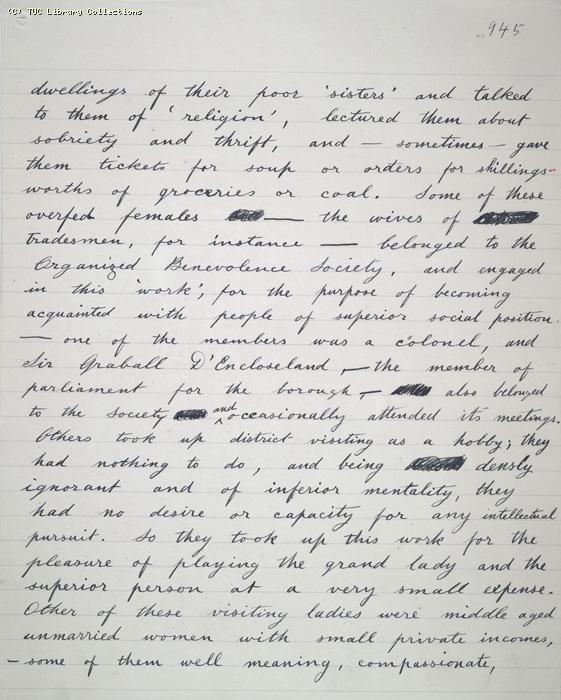 (C) TUC Library Collections
945
dwellings of their poor 'sisters' and talked
to them of 'religion', lectured them about
sobriety and thrift, and — sometimes — gave
them tickets for soup or orders for shillings-
worths of groceries or coal. Some of these
overfed females — the wives of
tradesmen, for instance — belonged to the
Organized Benevolence Society, and engaged
in this 'work', for the purpose of becoming
acquainted with people of superior social position.
— one of the members was a colonel, and
Sir Graball D'Encloseland, — the member of
parliament for the borough, — also belonged
to the Society and occasionally attended its meetings.
Others took up district visiting as a hobby; they
had nothing to do, and being densly
ignorant and of inferior mentality, they
had no desire or capacity for any intellectual
pursuit. So they took up this work for the
pleasure of playing the grand lady and the
superior person at a very small expense.
Other of these visiting ladies were middle aged
unmarried women with small private incomes,
— some of them well meaning, compassionate,